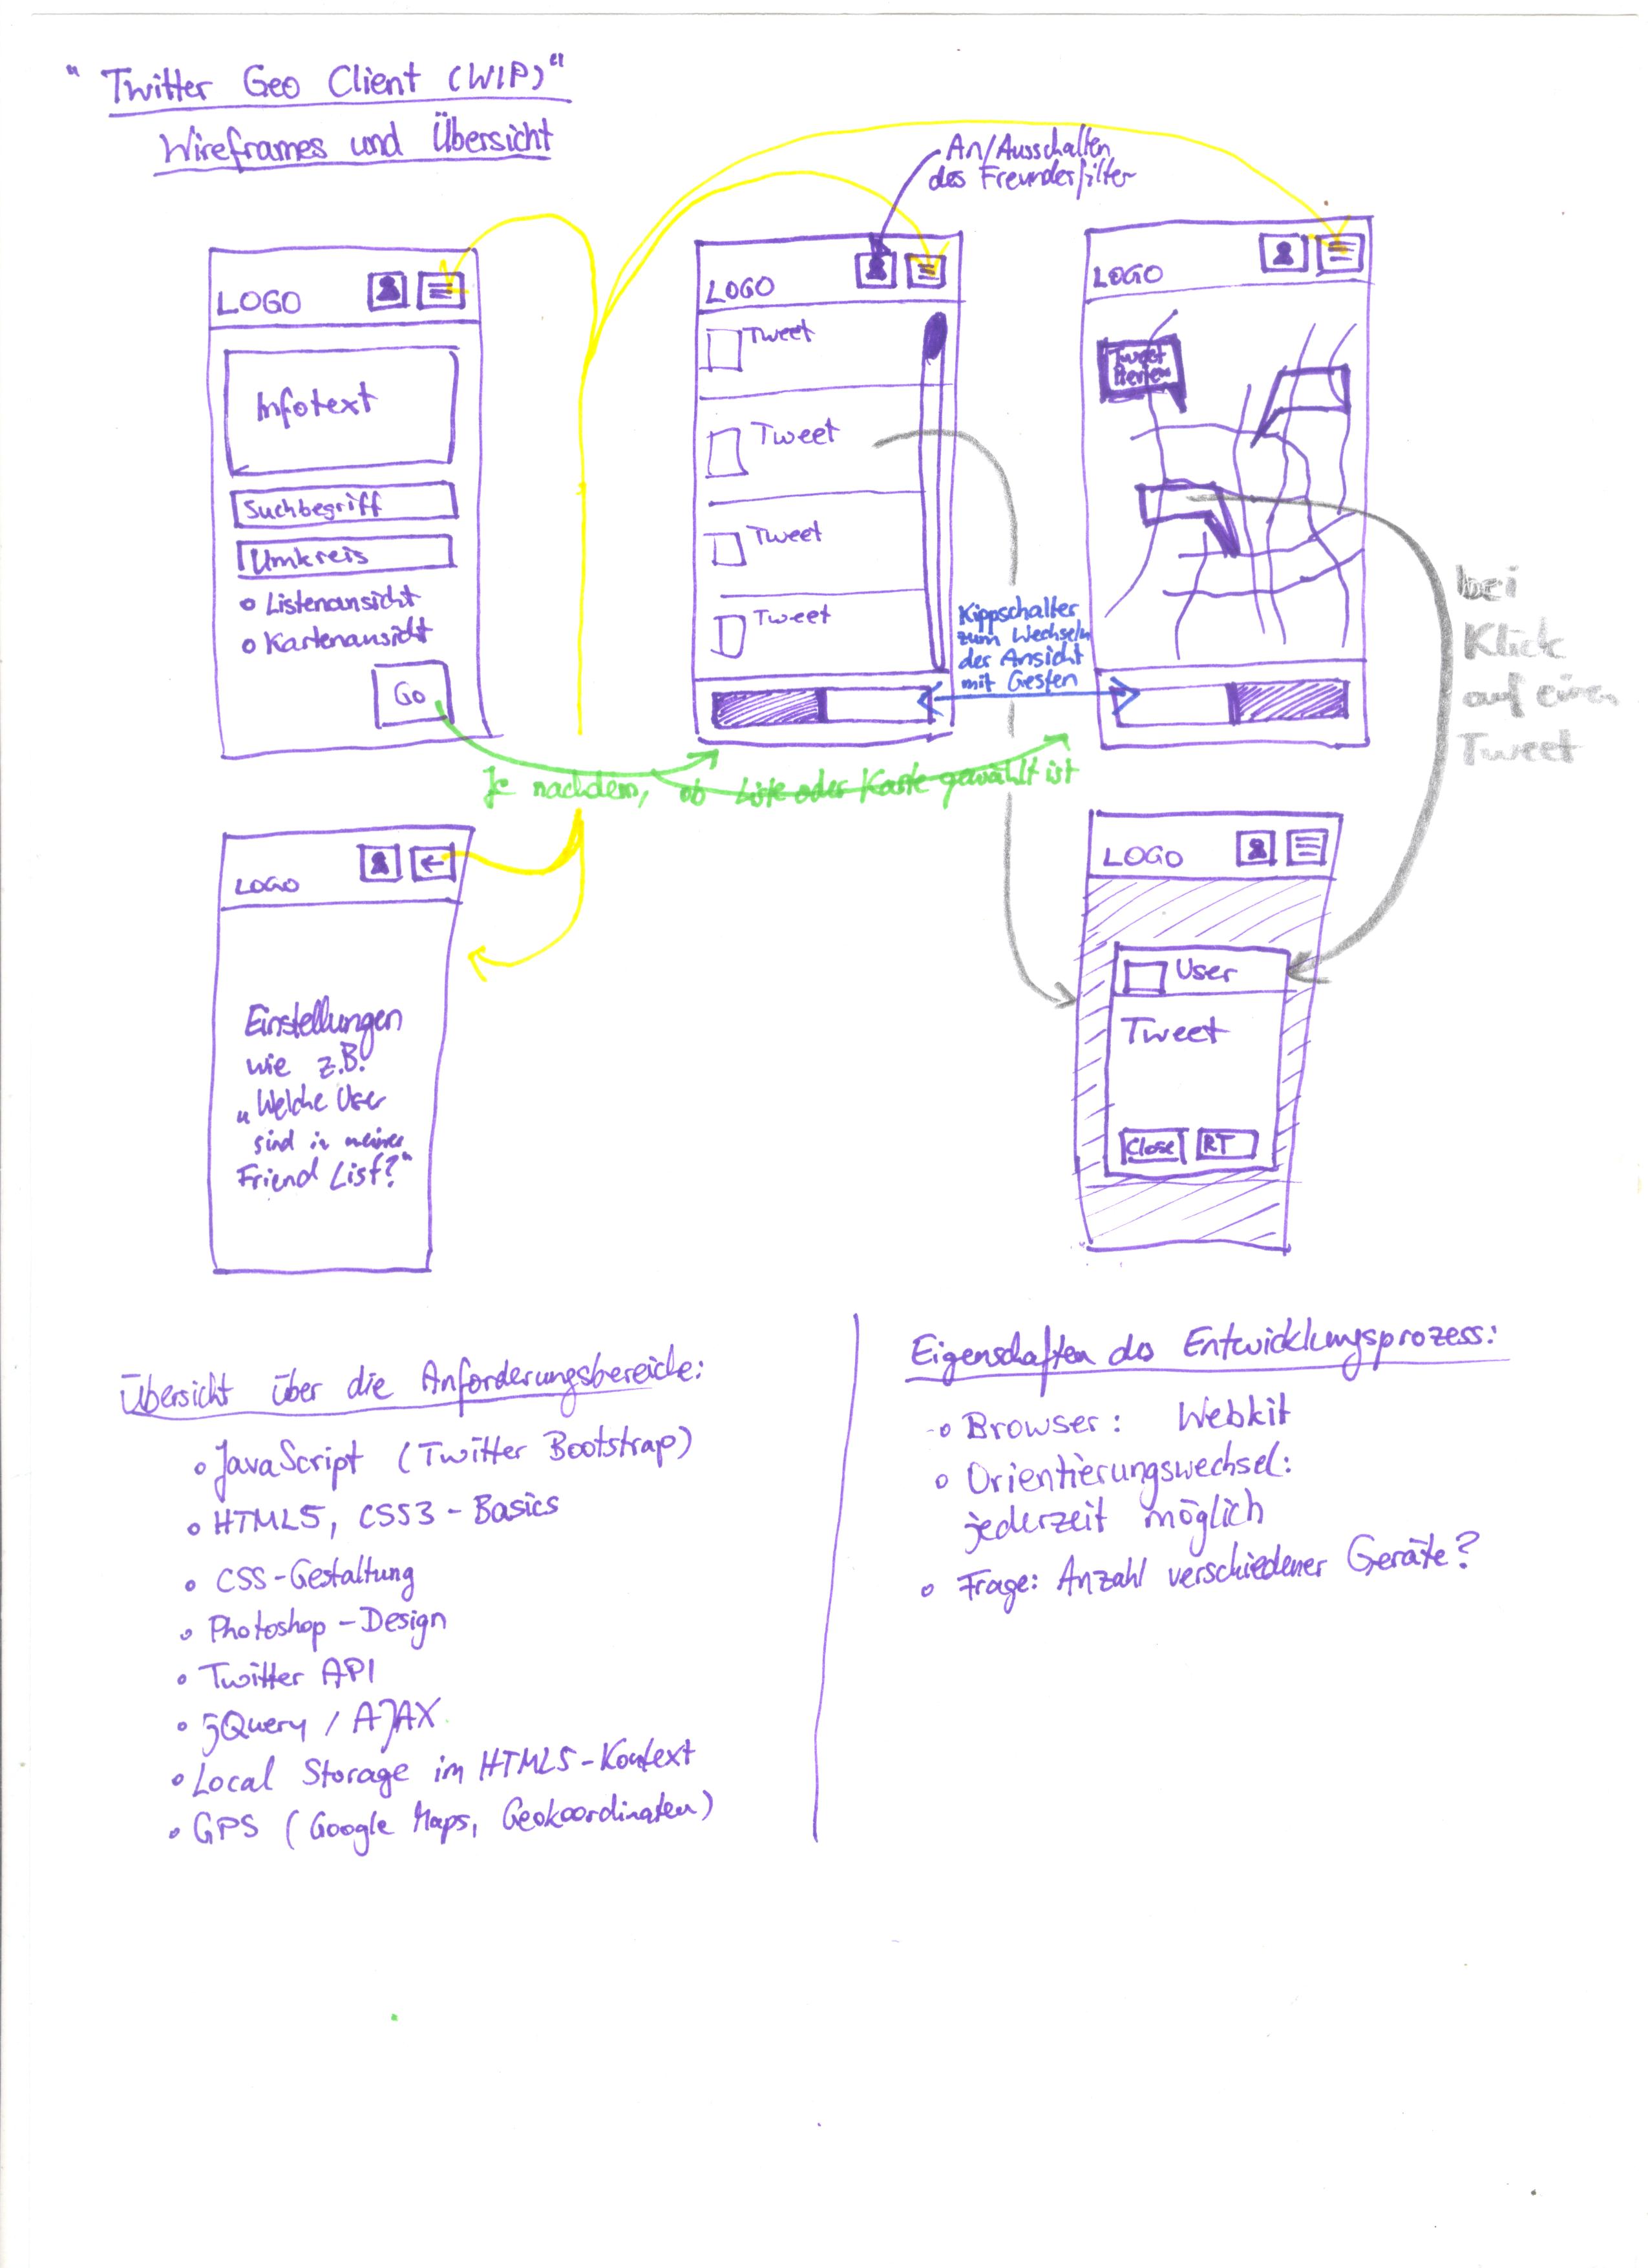 "Twitter Geo Client (WIP)"
Wireframes und Übersicht
An/Ausschalten
des Freundefilter
LOGO
Infotext
Suchbegriff
Umkreis
Listenansicht
Kartenansicht
Go
LOGO
Tweet
Tweet
Tweet
Tweet
Kippschalter
zum Wechseln
der Ansicht
mit Gesten
LOGO
Tweet
bei
Klick
auf einen
Tweet
Je nachdem, ob Liste oder Karte gewählt ist
LOGO
Einstellungen
wie z.B.
„Welche User
sind in meiner
Friend List?"
LOGO
User
Tweet
Close RT
Übersicht über die Anforderungsbereiche:
JavaScript (Twitter Bootstrap)
HTML5, CSS3 - Basics
CSS-Gestaltung
Photoshop - Design
Twitter API
jQuery / AJAX
Local Storage im HTML5-Kontext
GPS (Google Maps, Geokoordinaten)
Eigenschaften des Entwicklungsprozess:
Browser: Webkit
Orientierungswechsel:
jederzeit möglich
Frage: Anzahl verschiedener Geräte?